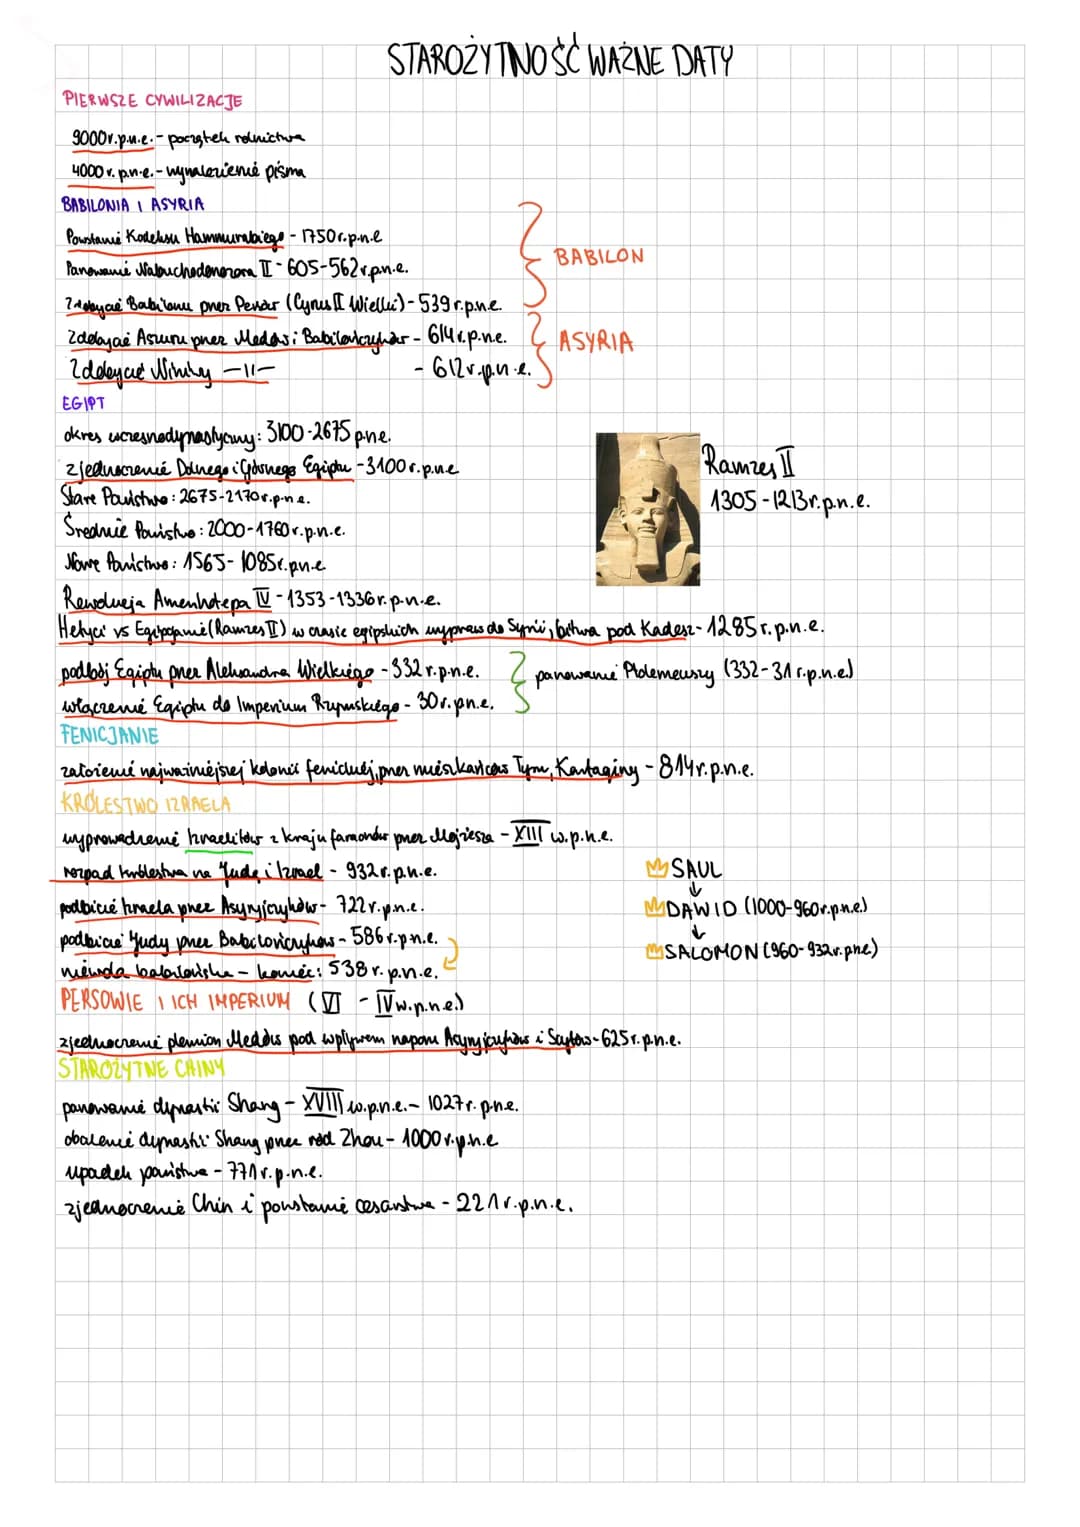 STAROŻYTNOŚĆ WAŻNE DATY
PIERWSZE CYWILIZACJE
9000r.p.n.e.- początek rolnictwa
4000 r. p.n.e.- wynalezienie pisma
BABILONIA I ASYRIA
Powstanie Kodeksu Hammurabiego - 1750r.p.n.e
Panowanie Nabuchodonozora II - 605-562r.p.n.e.
Zdobycie Babilonu przez Persów (Cyrus II Wielki) - 539 r.p.n.e.
BABILON
Zdobycie Aszuru przez Medów i Babilończyków - 614r.p.n.e.
Zdobycie Niniwy —11— - 612r.p.n.e.
ASYRIA
EGIPT
okres wczesnodynastyczny: 3100-2675 p.n.e.
zjednoczenie Dolnego i Górnego Egiptu - 3100 r.p.n.e
Stare Państwo: 2675-2170r.p.n.e.
Średnie Państwo: 2000-1760 r.p.n.e.
Nowe Państwo: 1565- 1085r.p.n.e
Ramzes II
1305-1213r.p.n.e.
Rewolucja Amenhotepa IV - 1353-1336r.p.n.e.
Hetyci vs Egipcjanie (Ramzes II) w czasie egipskich wypraw do Syrii, bitwa pod Kadesz - 1285 r.p.n.e.
podbój Egiptu przez Aleksandra Wielkiego - 332 r.p.n.e.
włączenie Egiptu do Imperium Rzymskiego - 30r.p.n.e.
panowanie Ptolemeuszy (332-31 r.p.n.e)
FENICJANIE
założenie najważniejszej kolonii fenickiej, przez mieszkańców Tyru, Kartaginy - 814r.p.n.e.
KRÓLESTWO IZRAELA
wyprowadzenie Izraelitów z kraju faraonów przez Mojżesza - XIII w.p.n.e.
rozpad królestwa na Judę i Izrael - 932r.p.n.e.
podbicie Izraela przez Asyryjczyków - 722r.p.n.e.
podbicie Judy przez Babilończyków - 586r.p.n.e.
niewola babilońska - koniec: 538 r. p.n.e.
SAUL
DAWID (1000-960r.p.n.e.)
SALOMON (960-932r.pne)
PERSOWIE I ICH IMPERIUM (VI - IVw.p.n.e.)
zjednoczenie plemion Medów pod wpływem naporu Asyryjczyków i Scytów - 625r.p.n.e.
STAROŻYTNE CHINY
panowanie dynastii Shang - XVIII w.p.n.e. - 1027r. p.n.e.
obalenie dynastii Shang przez ród Zhou - 1000 r.p.n.e
upadek państwa - 771r.p.n.e.
zjednoczenie Chin i powstanie cesarstwa - 221r.p.n.e.